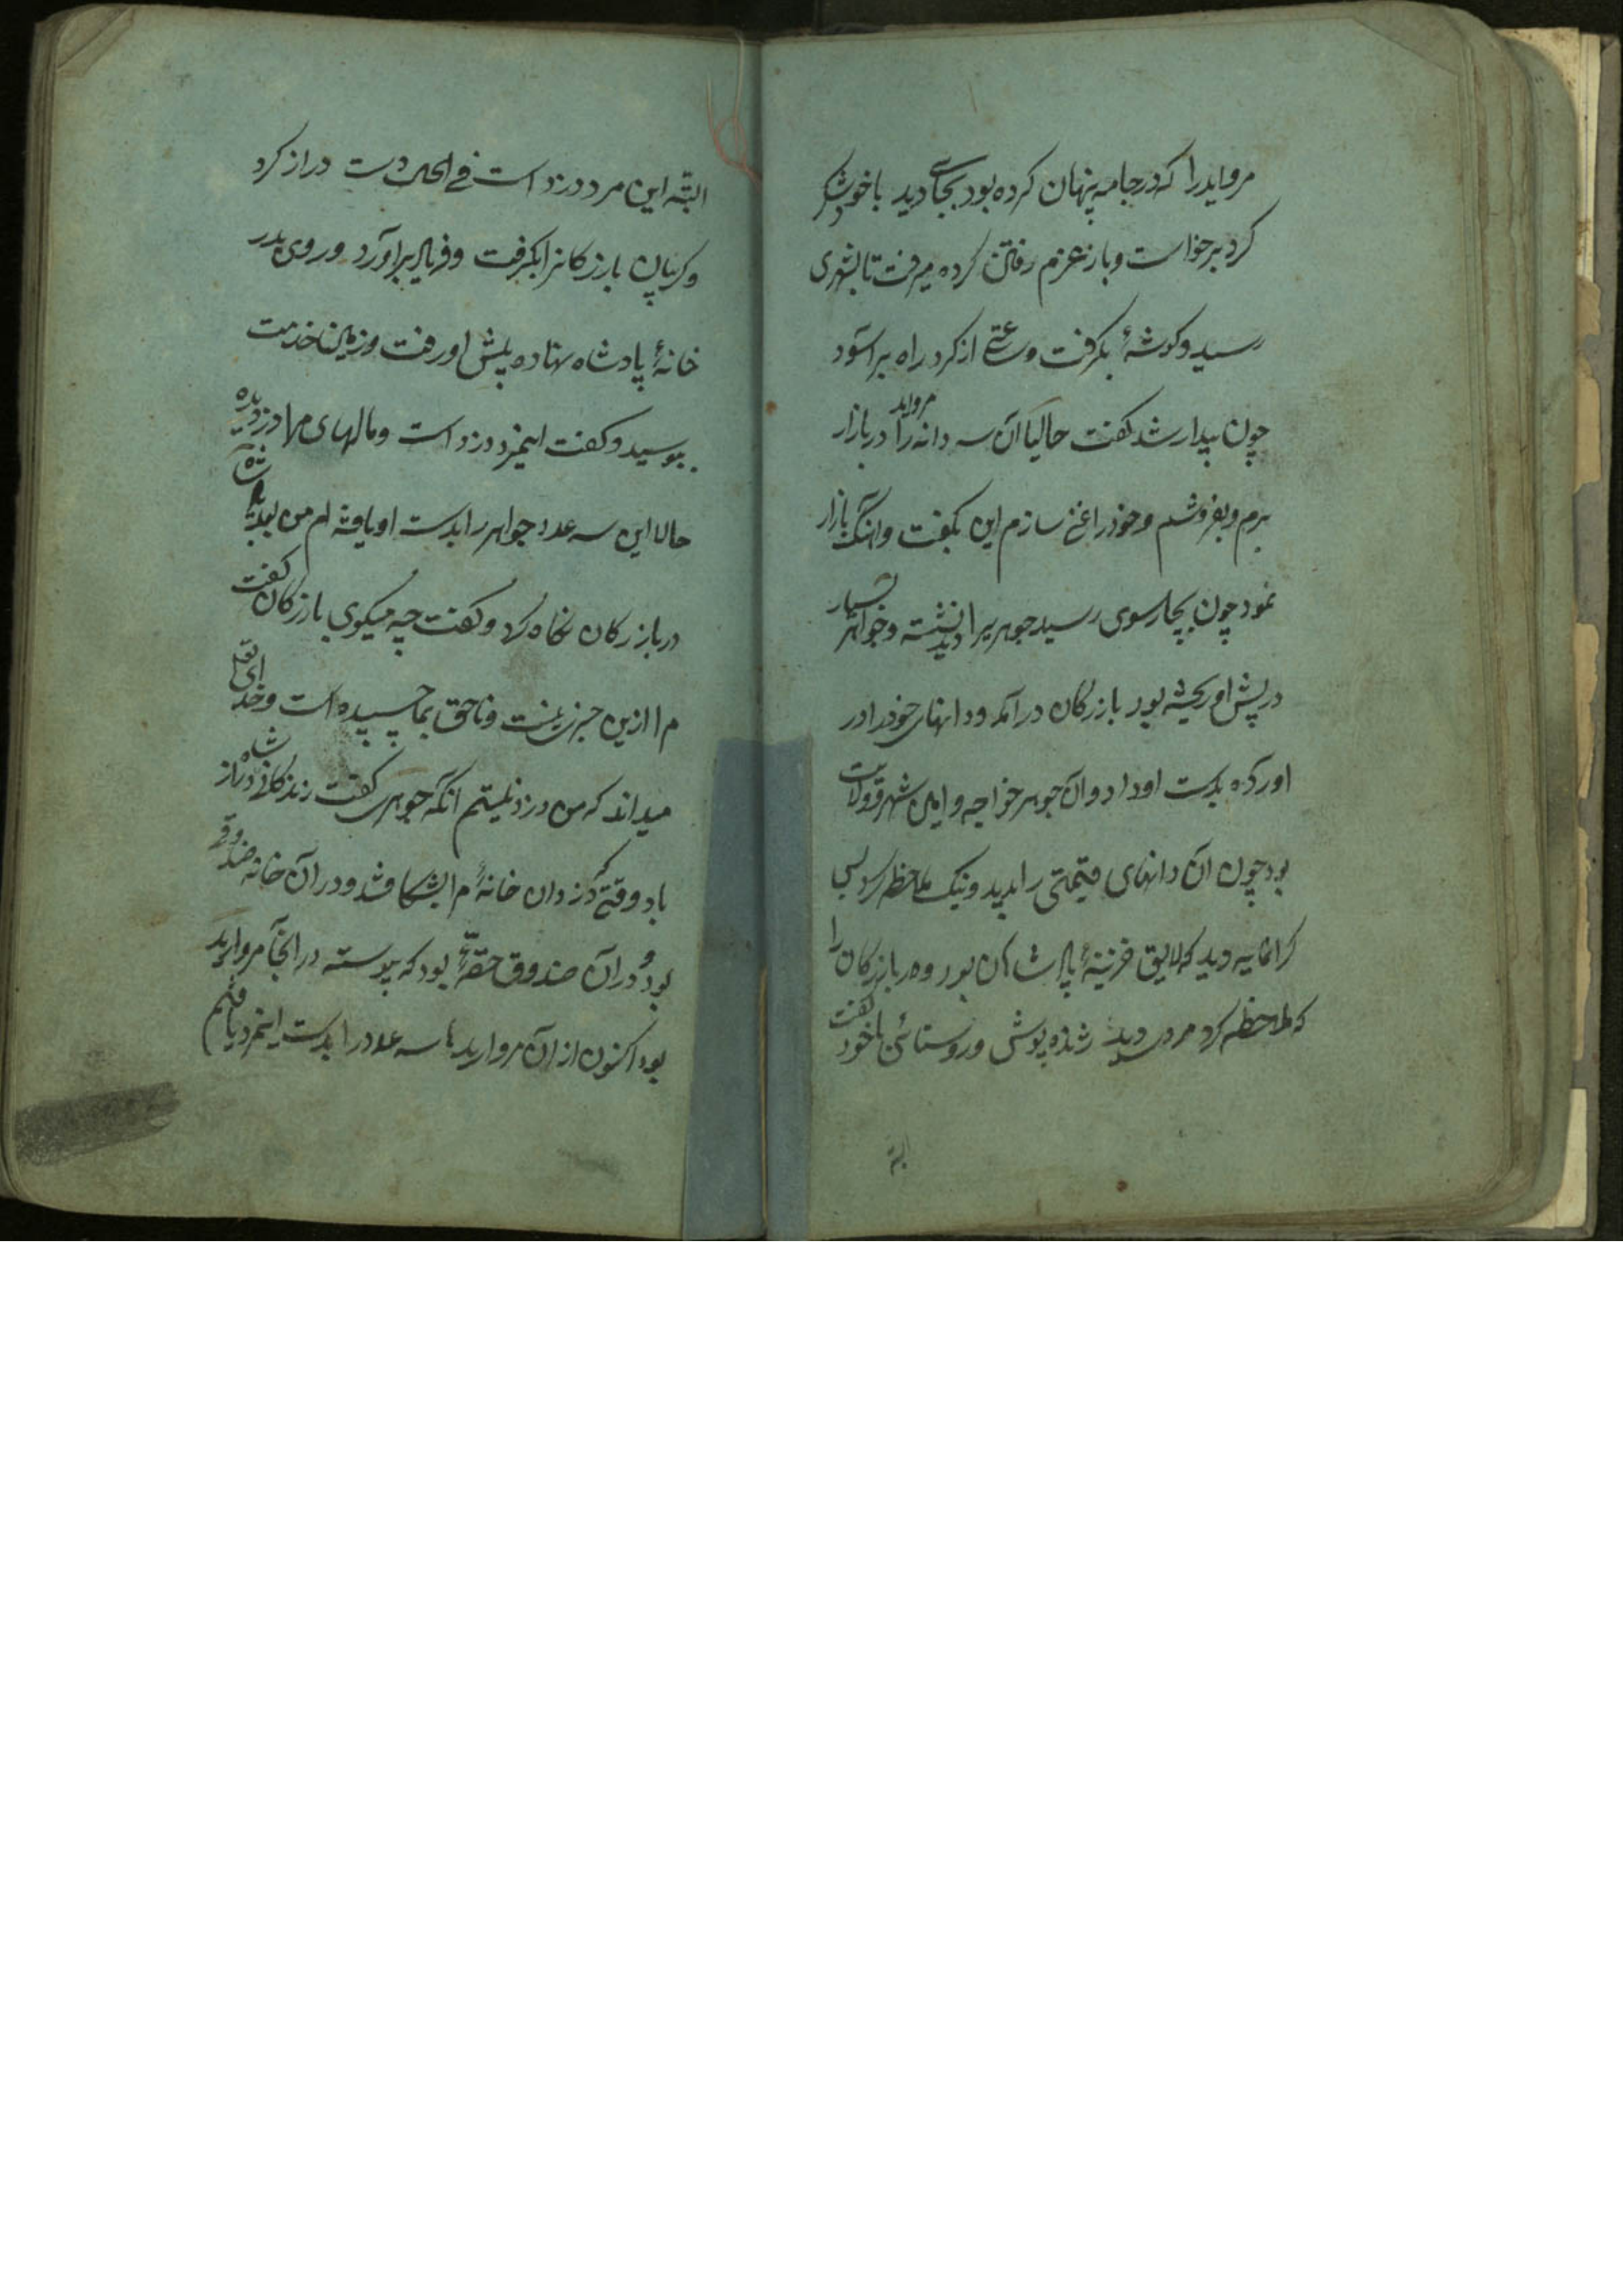 مروایدرا که در جامه پنهان کرده بود بجای دید با خود شکر
کرد برخواست و باز عزم رفتن کرده میرفت تا بشهری
رسید و کوشهٔ بکرفت و ساعتی از کرد راه برآسود
چون بیدار شد کفت حالیا آن سه دانه مرواید را در بازار
برم و بفروشم و خودرا غنی سازم این بکفت و آهنک بازار
نمود چون بچارسوی رسید جوهریرا دید نشسته و جواهر بسیار
در پیش او ریخته بود بازرکان در آمد و دانهای خودرا در
آورده بدست او داد و آن جوهر خواجه و امین شهر و ولایت
بود چون آن دانهای قیمتی را بدید و نیک ملاحظه کرد بسی
کرانمایه دید که لایق خزینهٔ پادشاهان بود و هر بازرکان را
که ملاحظه کرد مردی دید ژنده پوش و روستائی با خود کفت
البته
البته این مرد دزد است فی الحال دست دراز کرد
و کریبان بازرکانرا بکرفت و فریاد برآورد و روی بدر
خانهٔ پادشاه نهاده پیش او رفت و زمین خدمت
ببوسید و کفت اینمرد دزد است و مالهای مرا دزدیده
حالا این سه عدد جواهر را بدست او یافته ام من بعد پادشاه
در بازرکان نکاه کرد و کفت چه میکوی بازرکان کفت
مرا ازین خبر نیست و ناحق بما چسپیده است و خدای تعلی
میداند که من دزد نیستم آنکه جوهری کفت زندکانی شاه دراز
باد وقتی که دزدان خانهٔ مرا بشکافتند و در آن خانه صندوقی
بود و در آن صندوق حقهٔ بود که پیوسته در آنجا مروارید
بود اکنون از آن مرواریدها سه عدد را بدست اینمرد یافتم